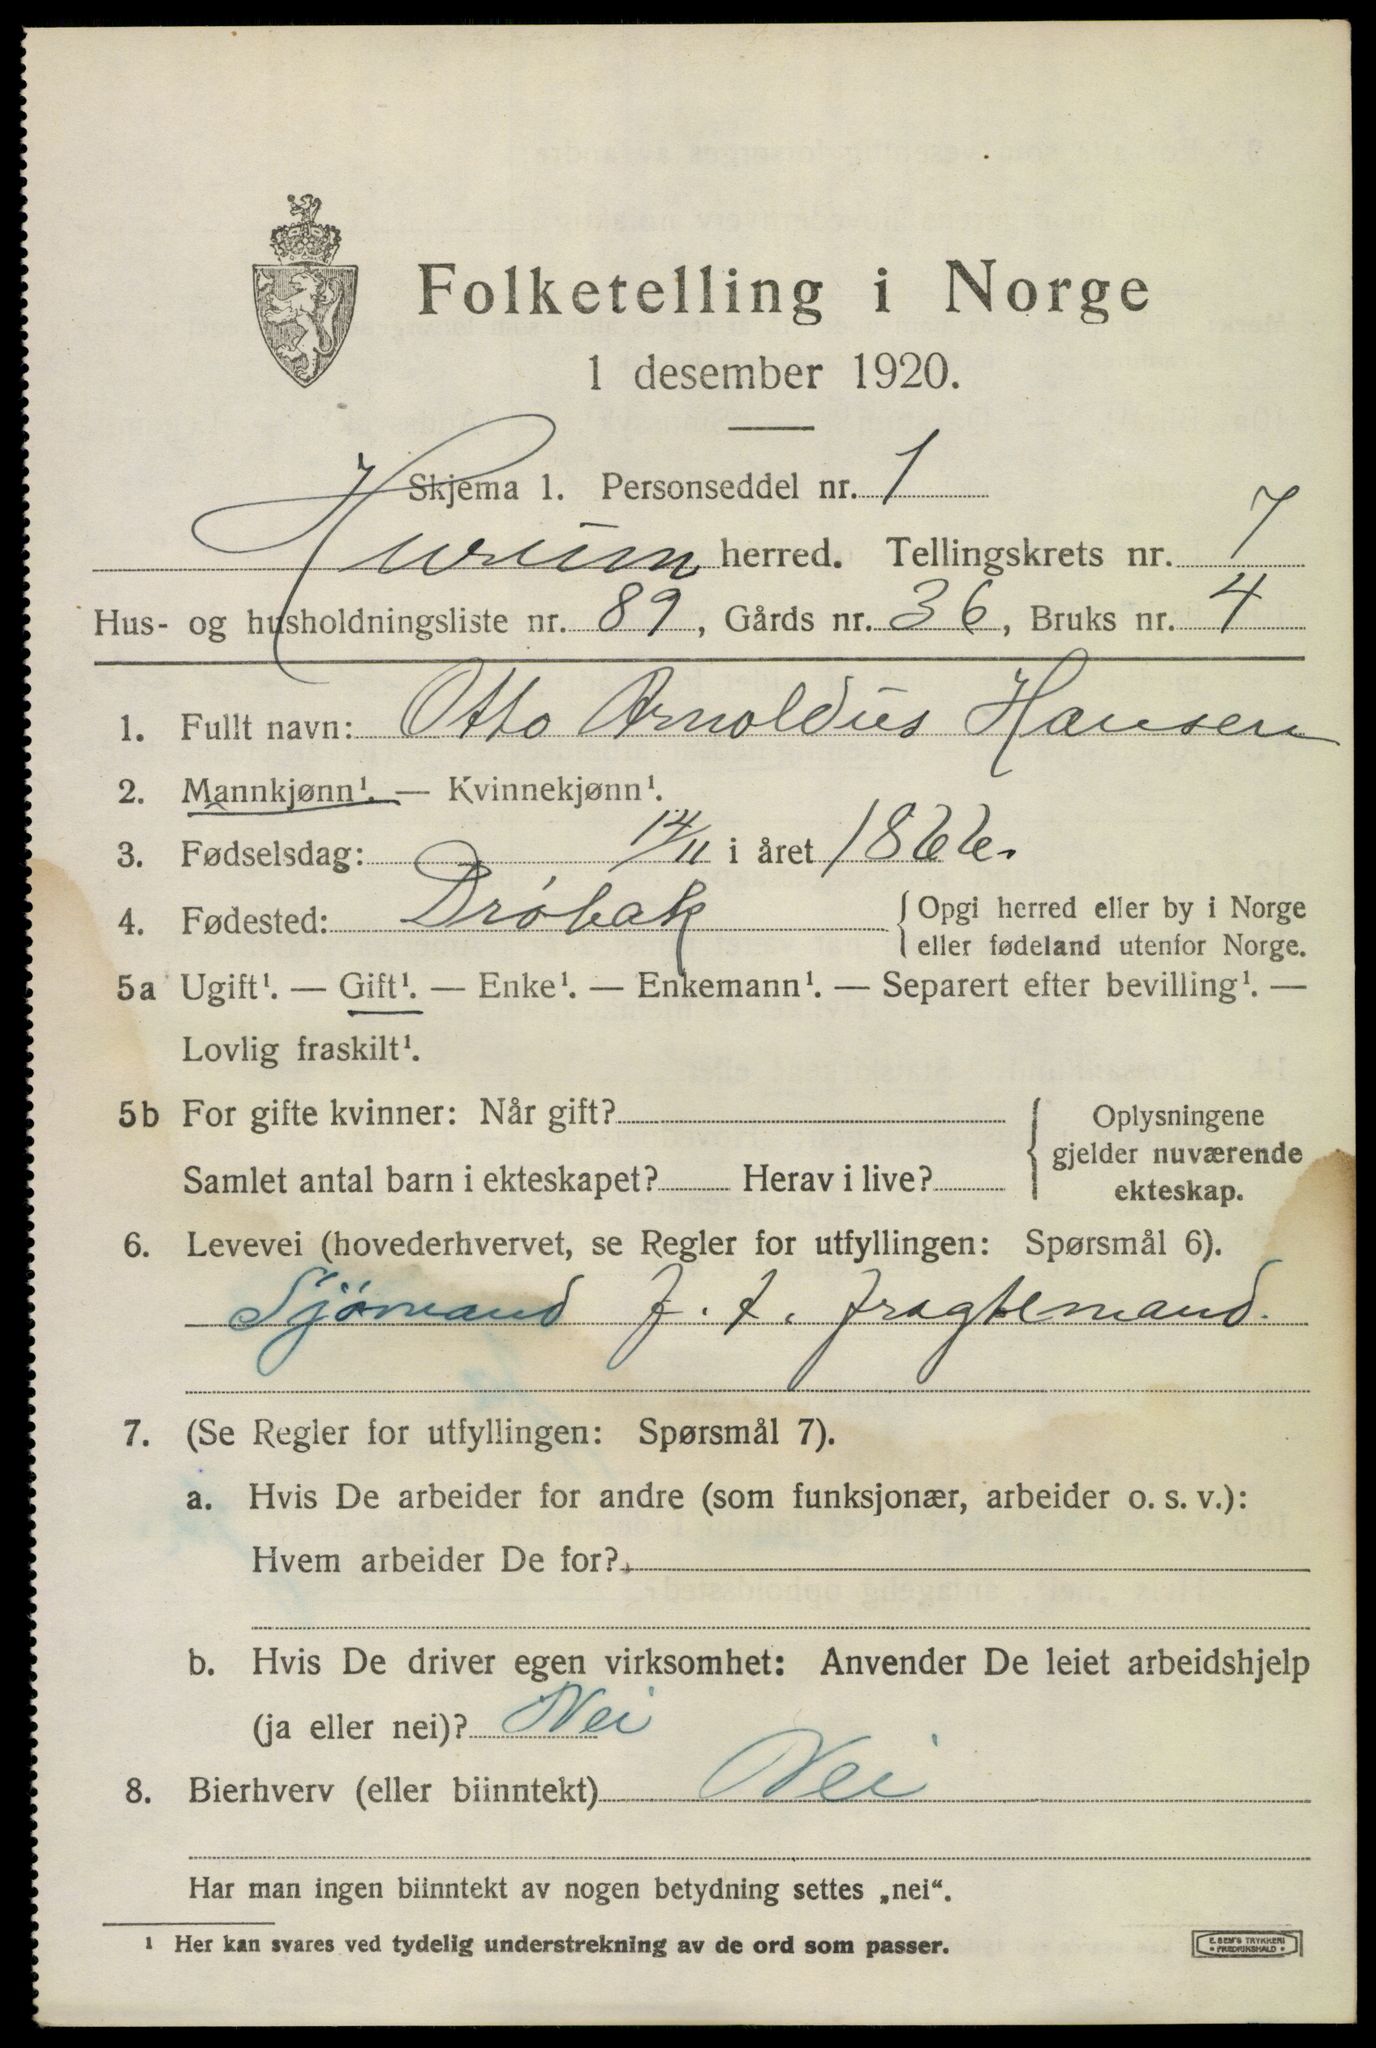 Folketelling i Norge
1 desember 1920.
Skjema 1. Personseddel nr. 1
Hurum herred. Tellingskrets nr. 7
Hus- og husholdningsliste nr. 89, Gårds nr. 36, Bruks nr. 4
1. Fullt navn: Otto Arnoldus Hansen
2. Mannkjønn¹. — Kvinnekjønn¹.
3. Fødselsdag: 14/11 i året 1866.
4. Fødested: Drøbak { Opgi herred eller by i Norge
eller fødeland utenfor Norge.
5a Ugift¹. — Gift¹. — Enke¹. — Enkemann¹. — Separert efter bevilling¹. —
Lovlig fraskilt¹.
5b For gifte kvinner: Når gift? { Oplysningene
gjelder nuværende
Samlet antal barn i ekteskapet? Herav i live? ekteskap.
6. Levevei (hovederhvervet, se Regler for utfyllingen: Spørsmål 6).
Sjømand f. t. fragtemand.
7. (Se Regler for utfyllingen: Spørsmål 7).
a. Hvis De arbeider for andre (som funksjonær, arbeider o. s. v.):
Hvem arbeider De for?
b. Hvis De driver egen virksomhet: Anvender De leiet arbeidshjelp
(ja eller nei)? Nei
8. Bierhverv (eller biinntekt) Nei
Har man ingen biinntekt av nogen betydning settes „nei“.
¹ Her kan svares ved tydelig understrekning av de ord som passer.
E. SEM'S TRYKKERI
• FREDRIKSHALD •